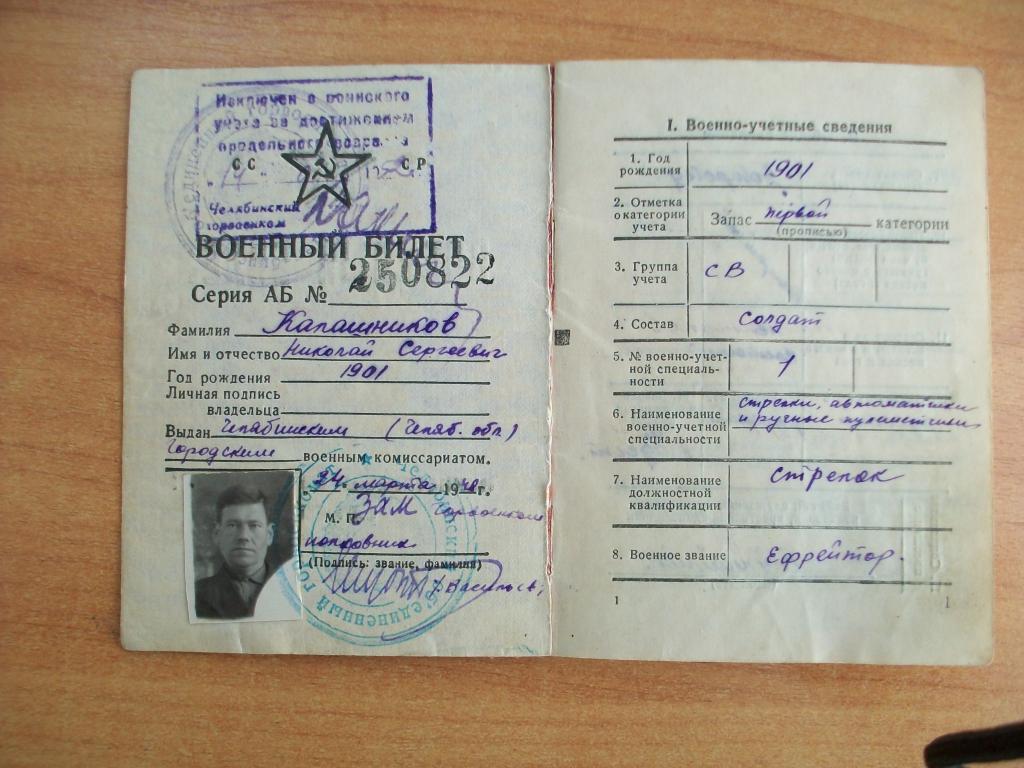 Исключен с воинского
учета за достижением
предельного возраста
СС СР
Челябинский
горвоенком
ВОЕННЫЙ БИЛЕТ
Серия АБ № 250822
Фамилия Калашников
Имя и отчество Николай Сергеевич
Год рождения 1901
Личная подпись
владельца
Выдан Челябинским (Челяб. обл.)
Городским военным комиссариатом.
24 марта 1948 г.
М. П. Зам горвоенкома
полковник
(Подпись: звание, фамилия)
I. Военно-учетные сведения
1. Год
рождения 1901
2. Отметка
о категории
учета Запас первой категории
(прописью)
3. Группа
учета СВ
4. Состав Солдат
5. № военно-учет-
ной специаль-
ности 1
6. Наименование
военно-учетной
специальности стрелки, автоматчики
и ручные пулеметчики
7. Наименование
должностной
квалификации Стрелок
8. Военное звание Ефрейтор.
1 1